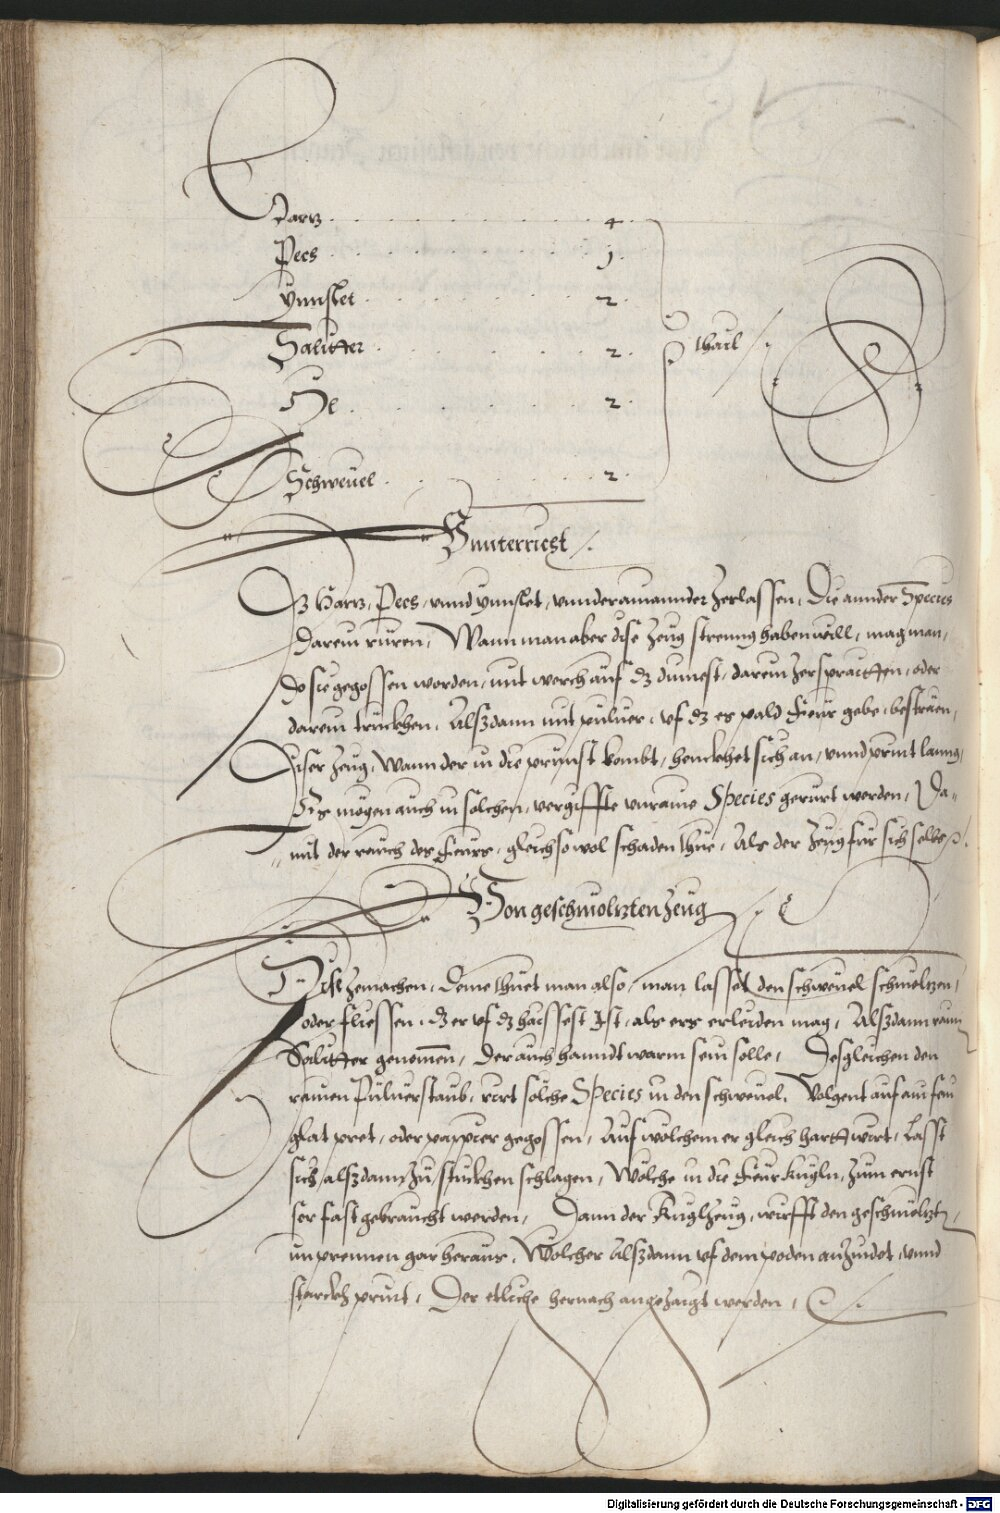 Harz . . . . . . . . 4 .
Pecs . . . . . . . . 1 .
Vnnslet . . . . . . . 2 .
Saliter . . . . . . . 2 . thail /.
Öl . . . . . . . . 2 .
Schweuel . . . . . . . 2 .
Vnnterricht /.
Dz Harz, Pecs, vnnd vnnslet, vnnder ainannder zerlassen, Die annder Species
darein rüren, Wann man aber dise Zeug strenng haben will, mag man,
do sie gegossen worden, mit werch auf dz dinnest, darein zerspraitten, oder
darein truckhen, Alsdann mit puluer, vf dz es pald feur gebe, besträen,
Diser Zeug, Wann der in die prunst kombt, henckhet sich an, vnnd print lanng,
Es mögen auch in solchen, vergiffte vnraine Species gerürt werden, Da-
mit der rauch des feurs, gleich so wol schaden thüe, Als der Zeug für sich selbs.
Von geschmoltzten Zeug /.
Ist ze machen, Deme thuet man also, man lasset den schweuel schmeltzen,
oder fliessen, dz er vf dz haissest Ist, als ers erleiden mag, Alsdann rain
Saliter genomen, Der auch hanndtwarm sein solle, Desgleichen den
rainen Puluerstaub, rürt solche Species in den schweuel, Volgent auf ain fein
glat pret, oder pappier gegossen, Auf wölchem er gleich hartt wirt, Lasst
sich alsdann zu stuckhen schlagen, Wölche in die feur kugln, zum ernst
ser fast gebraucht werden, Dann der Kuglzeug, wirfft den geschmeltzt,
im prennen gar heraus, Wölcher Alsdann vf dem poden anzündet, vnnd
starckh print, Der etliche hernach angezaigt werden,
Digitalisierung gefördert durch die Deutsche Forschungsgemeinschaft - DFG